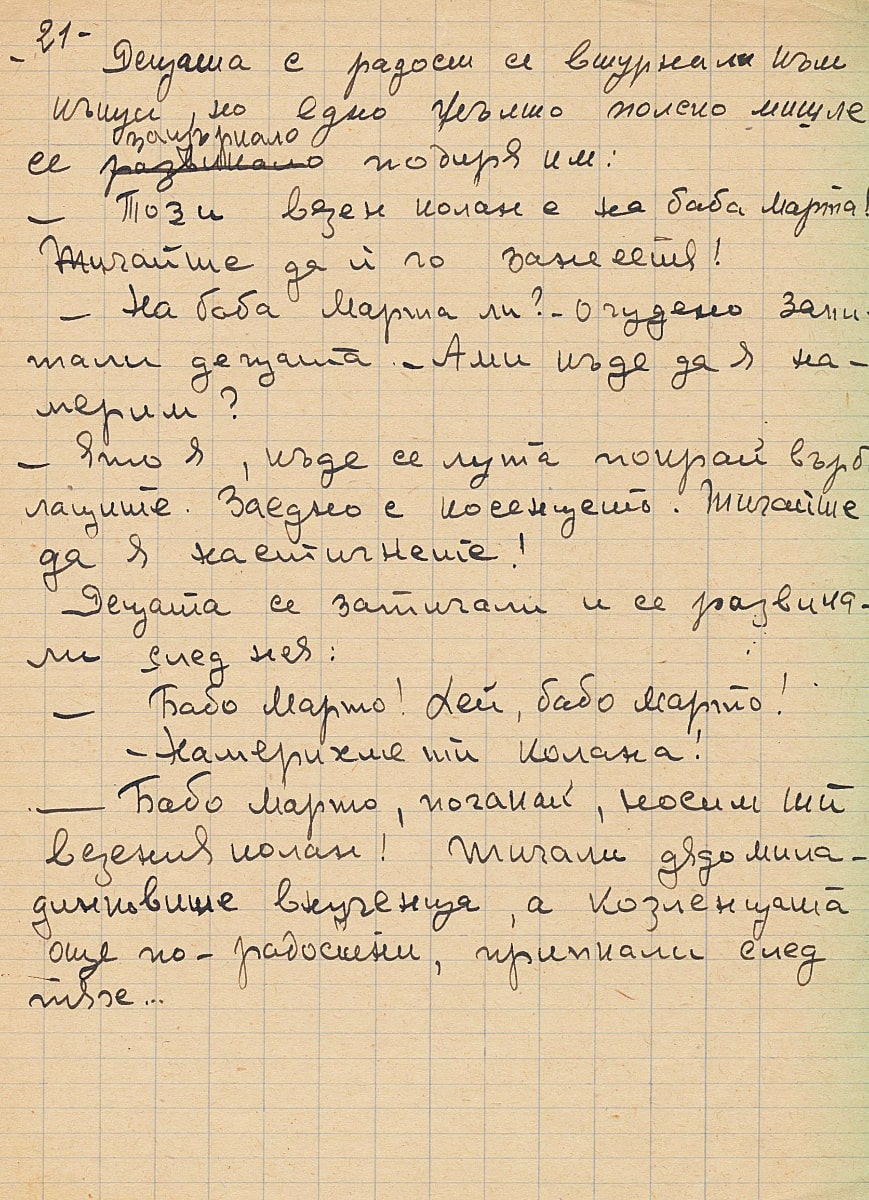 - 21 -
Децата с радост се втурнали към
къщи, но едно жълто полско мишле
зацъркало
се развикало подиря им:
- Този везен колан е на баба Марта!
Тичайте да й го занесете!
- На баба Марта ли? - Очудено запи-
тали децата. - Ами къде да я на-
мерим?
- Ято я, къде се лута покрай върб
лаците. Заедно с косенцето. Тичайте
да я настигнете!
- Децата се затичали и се развика-
ли след нея:
- Бабо Марто! Хей, бабо Марто!
- Намерихме ти колана!
- Бабо Марто, почакай, носим ти
везения колан! Тичали дядо Мила-
диновите внученца, а козленцата
още по-радостни, припкали след
тях...